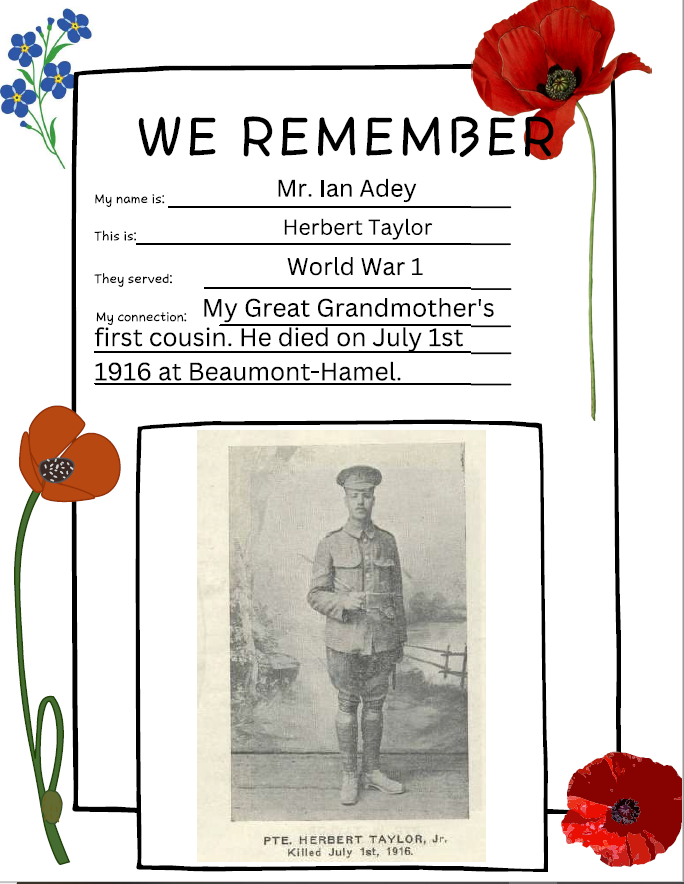 WE REMEMBER
My name is: Mr. Ian Adey
This is: Herbert Taylor
They served: World War 1
My connection: My Great Grandmother's
first cousin. He died on July 1st
1916 at Beaumont-Hamel.
PTE. HERBERT TAYLOR, Jr.
Killed July 1st, 1916.